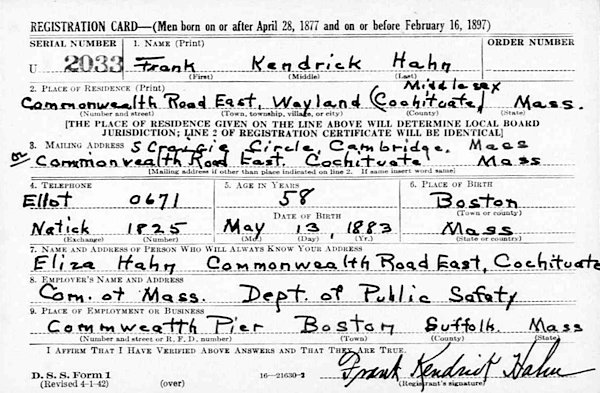 REGISTRATION CARD—(Men born on or after April 28, 1877 and on or before February 16, 1897)
SERIAL NUMBER 1. NAME (Print) ORDER NUMBER
U 2033 Frank Kendrick Hahn
(First) (Middle) (Last)
2. PLACE OF RESIDENCE (Print) Middlesex
Commonwealth Road East, Wayland (Cochituate) Mass.
(Number and street) (Town, township, village, or city) (County) (State)
[THE PLACE OF RESIDENCE GIVEN ON THE LINE ABOVE WILL DETERMINE LOCAL BOARD
JURISDICTION; LINE 2 OF REGISTRATION CERTIFICATE WILL BE IDENTICAL]
3. MAILING ADDRESS 5 Craigie Circle, Cambridge, Mass
or Commonwealth Road East. Cochituate Mass
[Mailing address if other than place indicated on line 2. If same insert word same]
4. TELEPHONE 5. AGE IN YEARS 6. PLACE OF BIRTH
Eliot 0671 58 Boston
DATE OF BIRTH (Town or county)
Natick 1825 May 13, 1883 Mass
(Exchange) (Number) (Mo.) (Day) (Yr.) (State or country)
7. NAME AND ADDRESS OF PERSON WHO WILL ALWAYS KNOW YOUR ADDRESS
Eliza Hahn Commonwealth Road East, Cochituate
8. EMPLOYER'S NAME AND ADDRESS
Com. of Mass. Dept. of Public Safety
9. PLACE OF EMPLOYMENT OR BUSINESS
Commwealth Pier Boston Suffolk Mass
(Number and street or R. F. D. number) (Town) (County) (State)
I AFFIRM THAT I HAVE VERIFIED ABOVE ANSWERS AND THAT THEY ARE TRUE.
D. S. S. Form 1
(Revised 4-1-42) (over) 16—21630-2 Frank Kendrick Hahn
(Registrant's signature)